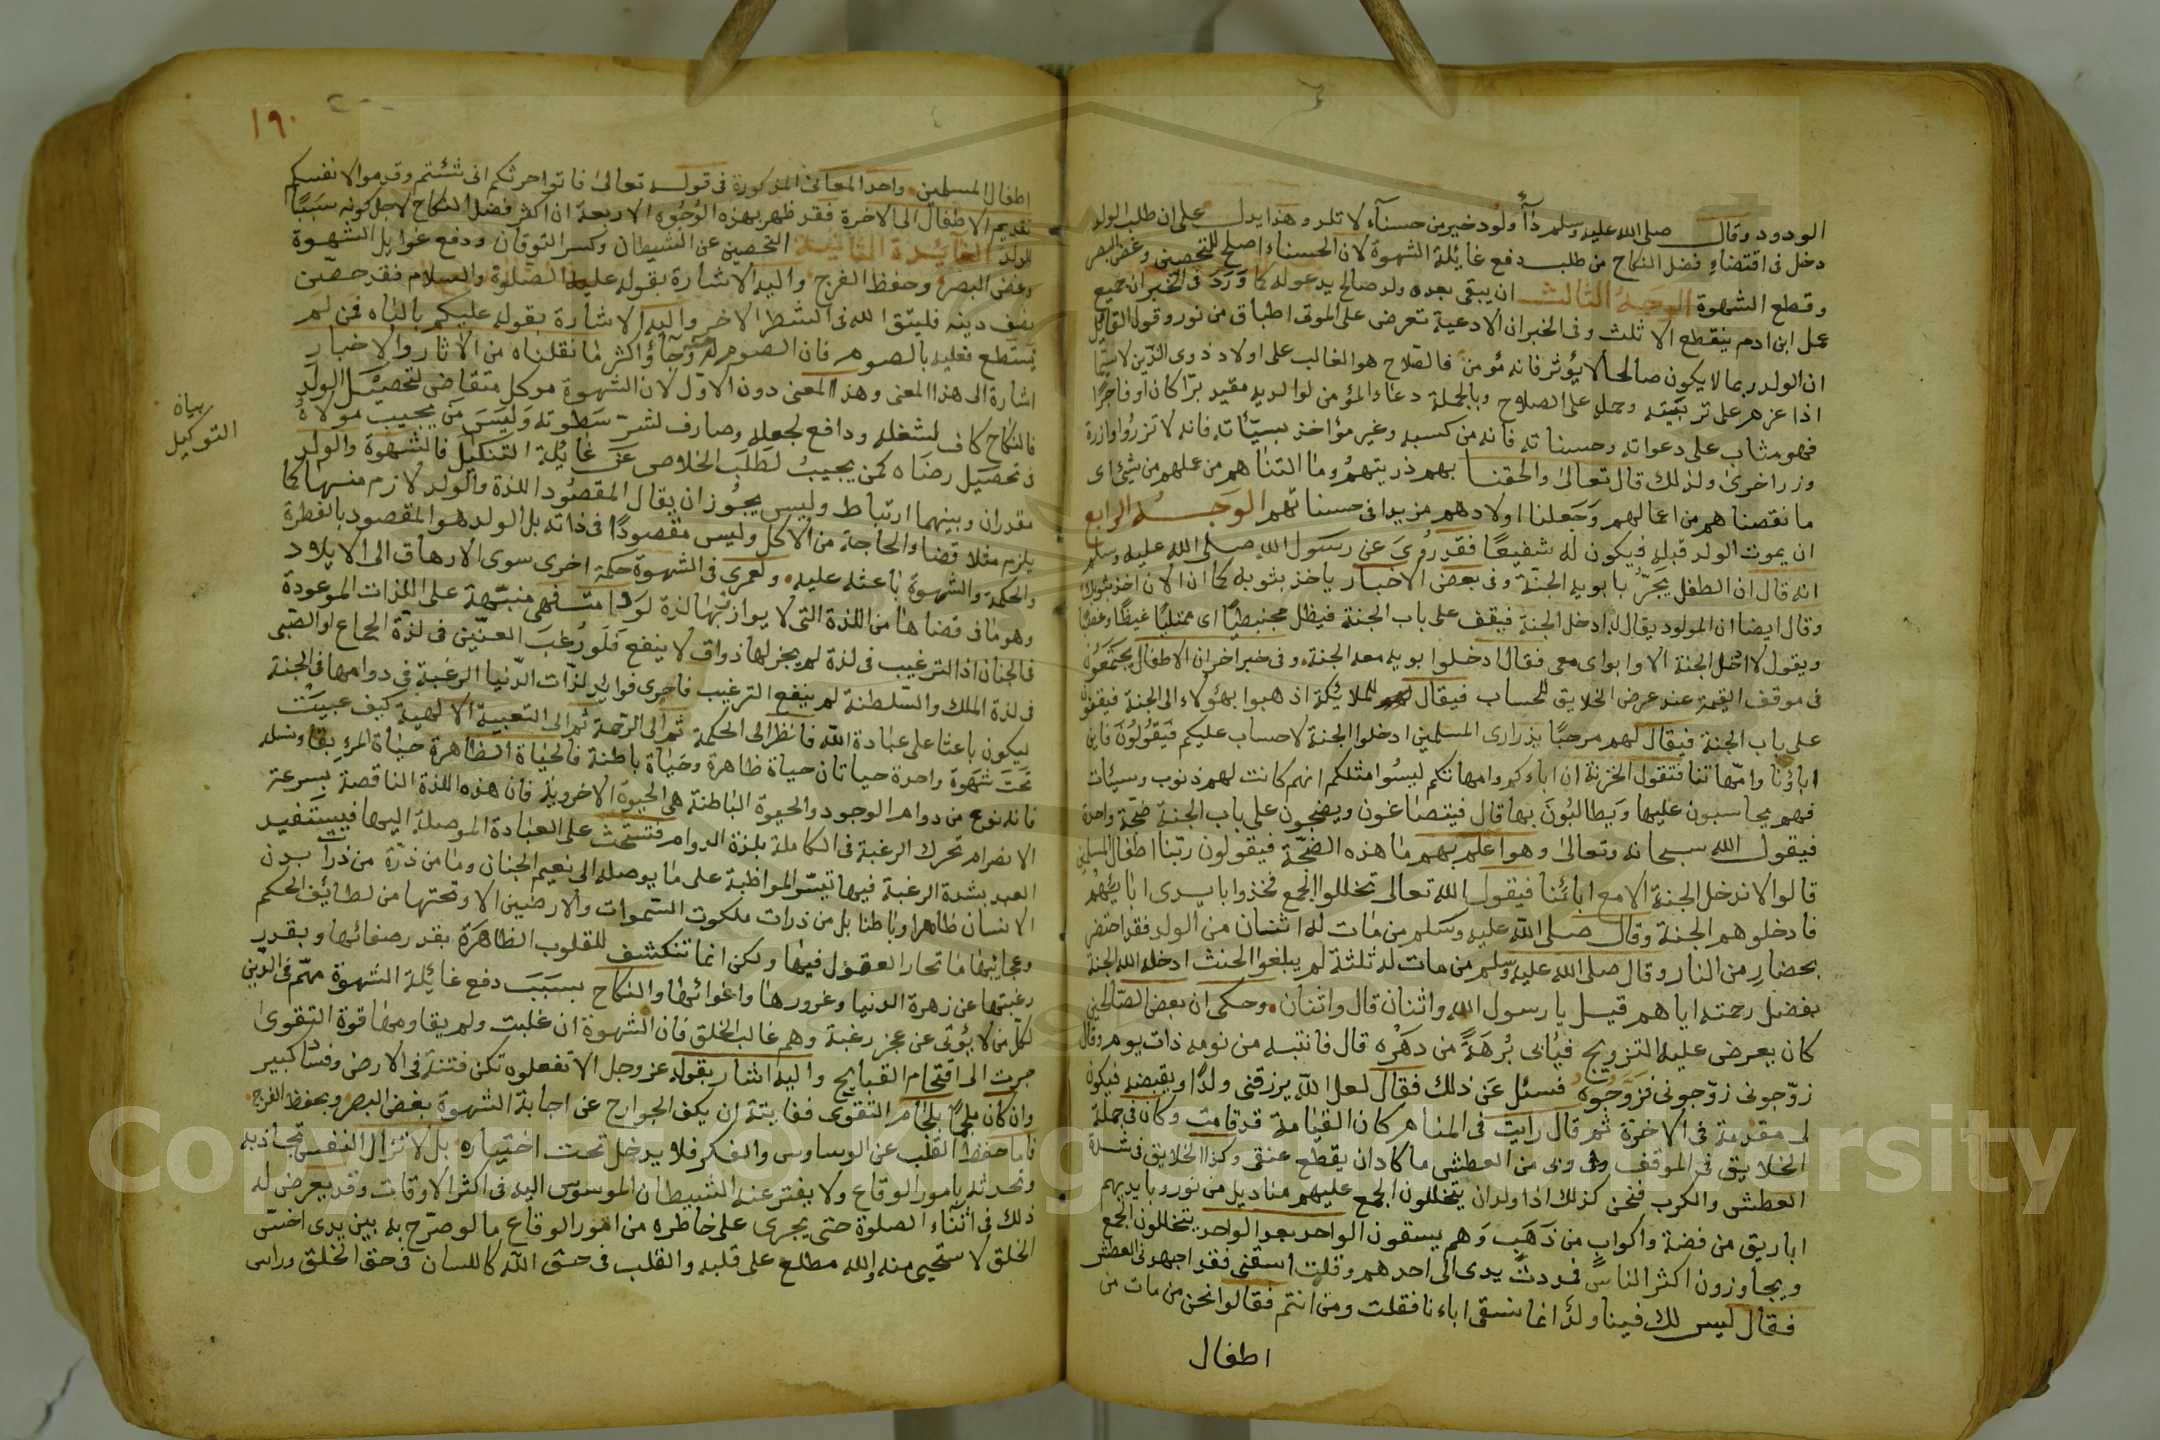 الودود وقال صلى الله عليه وسلم سوآء ولود خير من حسنآء لا تلد وهذا يدل على ان طلب الولد
دخل فى اقتضاء فضل النكاح من طلب دفع غائلة الشهوة لان الحسناء اصلح للتحصين وغض البصر
وقطع الشهوة الوجه الثالث ان يبقى بعده ولد صالح يدعو له كما ورد فى الخبر ان جميع
عمل ابن ادم ينقطع الا ثلث وفى الخبر ان الادعية تعرض على الموتى اطباق من نور وقول القائل
ان الولد ربما لا يكون صالحا لا يؤثر فانه مؤمن فالصلاح هو الغالب على اولاد ذوى الدين لا سيما
اذا عزم على تربيته وحمله على الصلاح وبالجملة دعاء المؤمن لوالديه مفيد برّا كان او فاجرًا
فهو مثاب على دعواته وحسناته فانه من كسبه وغير مؤاخذ بسيّأته فانه لا تزر وازرة
وزر اخرى ولذلك قال تعالى والحقنا بهم ذريتهم وما التناهم من عملهم من شئ اى
ما نقصناهم من اعمالهم وجعلنا اولادهم مزيدا فى حسناتهم الوجه الرابع
ان يموت الولد قبله فيكون له شفيعًا فقد روى عن رسول الله صلى الله عليه وسلم
انه قال ان الطفل يجرّ بابويه الى الجنة وفى بعض الاخبار ياخذ بثوبه كما ان الان اخذ بثوبك
وقال ايضا ان المولود يقال له ادخل الجنة فيقف على باب الجنة فيظل محبنطيًا اى ممتلئًا غيظًا وغضبًا
ويقول لا ادخل الجنة الا وابواى معى فقال ادخلوا ابويه معه الجنة وفى خبر اخر ان الاطفال يجتمعون
فى موقف القيمة عند عرض الخلايق للحساب فيقال للملائكة اذهبوا بهؤلاء الى الجنة فيقفون
على باب الجنة فيقال لهم مرحبًا بذرارى المسلمين ادخلوا الجنة لا حساب عليكم فيقولون فاين
اباؤنا وامهاتنا فتقول الخزنة ان اباءكم وامهاتكم ليسوا مثلكم انهم كانت لهم ذنوب وسيئات
فهم يحاسبون عليها ويطالبون بها قال فيتضاغون ويضجون على باب الجنة ضجة واحدة
فيقول الله سبحانه وتعالى وهو اعلم بهم ما هذه الضجّة فيقولون ربّنا اطفال المسلمين
قالوا لا ندخل الجنة الا مع ابائنا فيقول الله تعالى تخللوا الجمع فخذوا بايدى ابائهم
فادخلوهم الجنة وقال صلى الله عليه وسلم من مات له اثنان من الولد فقد احتضر
بحضار من النار وقال صلى الله عليه وسلم من مات له ثلثة لم يبلغوا الحنث ادخله الله الجنة
بفضل رحمته اياهم قيل يا رسول الله واثنان قال واثنان وحكى ان بعض الصالحين
كان يعرض عليه التزويج فيأبى برهةً من دهره قال فانتبه من نومه ذات يوم وقال
زوّجونى زوّجونى فزوّجوه فسئل عن ذلك فقال لعل الله يرزقنى ولدًا ويقبضه فيكون
لى مقدمة فى الاخرة ثم قال رايت فى المنام كان القيامة قد قامت وكان فى جملة
الخلايق فى الموقف وبى من العطش ما كاد ان يقطع عنقى وكذا الخلايق فى شدة
العطش والكرب فنحن كذلك اذا ولدان يتخللون الجمع عليهم مناديل من نور وبايديهم
اباريق من فضة واكواب من ذهب وهم يسقون الواحد بعد الواحد يتخللون الجمع
ويجاوزون اكثر الناس فمددت يدى الى احدهم وقلت اسقنى فقد اجهدنى العطش
فقال ليس لك فينا ولد انما نسقى اباءنا فقلت ومن انتم فقالوا نحن من مات من
اطفال
١٩٠
اطفال المسلمين واحد المعانى المذكورة فى قوله تعالى فاتوا حرثكم انى شئتم وقدموا لانفسكم
تقديم الاطفال الى الاخرة فقد ظهر بهذه الوجوه الاربعة ان اكثر فضل النكاح لاجل كونه سببًا
للولد الفايدة الثانية التحصين عن الشيطان وكسر التوقان ودفع غوايل الشهوة
وغض البصر وحفظ الفرج واليه الاشارة بقوله عليه الصلوة والسلام فقد حصّن
نصف دينه فليتق الله فى الشطر الاخر واليه الاشارة بقوله عليكم بالباه فمن لم
يستطع فعليه بالصوم فان الصوم له وجآء واكثر ما نقلناه من الاثار والاخبار
اشارة الى هذا المعنى وهذا المعنى دون الاوّل لان الشهوة موكل متقاضى لتحصيل الولد
بيان
التوكيل
فالنكاح كاف لشغله ودافع لجعله وصارف لشرّ سطوته وليس من يجيب مولاه
فى تحصيل رضاه كمن يجيب لطلب الخلاص عن غائلة التنكيل فالشهوة والولد
مقدران وبينهما ارتباط وليس يجوز ان يقال المقصود اللذة والولد لازم منها كما
يلزم مثلا قضاء الحاجة من الاكل وليس مقصودًا فى ذاته بل الولد هو المقصود بالفطرة
والحكمة والشهوة باعثه عليه ولعمرى فى الشهوة حكمة اخرى سوى الارهاق الى الايلاد
وهو ما فى قضاها من اللذة التى لا يوازيها لذة لو دامت فهى منبّهة على اللذات الموعودة
فى الجنان اذ الترغيب فى لذة لم يجد لها ذواق لا ينفع فلو رغب العنّين فى لذة الجماع او الصبى
فى لذة الملك والسلطنة لم ينفع الترغيب فاحرى فوائد لذّات الدّنيا الرغبة فى دوامها فى الجنة
ليكون باعثا على عبادة الله فانظر الى الحكمة ثم الى الرحمة ثم الى التعبية الالهية كيف عبيت
تحت شهوة واحدة حياتان حياة ظاهرة وحياة باطنة فالحياة الظاهرة حياة المرء ببقاء نسله
فانه نوع من دوام الوجود والحيوة الباطنة هى الحيوة الاخروية فان هذه اللذة الناقصة بسرعة
الانصرام تحرك الرغبة فى الكاملة بلذة الدوام فتستحث على العبادة الموصلة اليها فيستفيد
العبد بشدة الرغبة فيها تيسّر المواظبة على ما يوصله الى نعيم الجنان وما من ذرّة من ذرات بدن
الانسان ظاهرا وباطنا بل من ذرات ملكوت السموات والارضين الا وتحتها من لطائف الحكم
وعجايبها ما تحار العقول فيها ولكن انما تنكشف للقلوب الظاهرة بقدر صفائها وبقدر
رغبتها عن زهرة الدنيا وغرورها واغوائها والنكاح بسبب دفع غائلة الشهوة مهمّ فى الدّين
لكل من لا يؤتى عن عجز رغبة وهم غالب الخلق فان الشهوة ان غلبت ولم يقاومها قوة التقوى
جرت الى اقتحام القبايح واليه اشار بقوله عز وجل الا تفعلوه تكن فتنة فى الارض وفساد كبير
وان كان ملجمًا بلجام التقوى فغايته ان يكف الجوارح عن اجابة الشهوة بغض البصر وبحفظ الفرج
فاما حفظ القلب عن الوساوس والفكر فلا يدخل تحت اختياره بل لا تزال النفس تجاذبه
وتحدثه بامور الوقاع ولا يفتر عنه الشيطان الموسوس اليه فى اكثر الاوقات وقد يعرض له
ذلك فى اثناء الصلوة حتى يجرى على خاطره من امور الوقاع ما لو صرّح به بين يدى اخسّ
الخلق لاستحيى منه والله مطلع على قلبه والقلب فى حق الله كاللسان فى حق الخلق وراس
Copyright © King Saud University